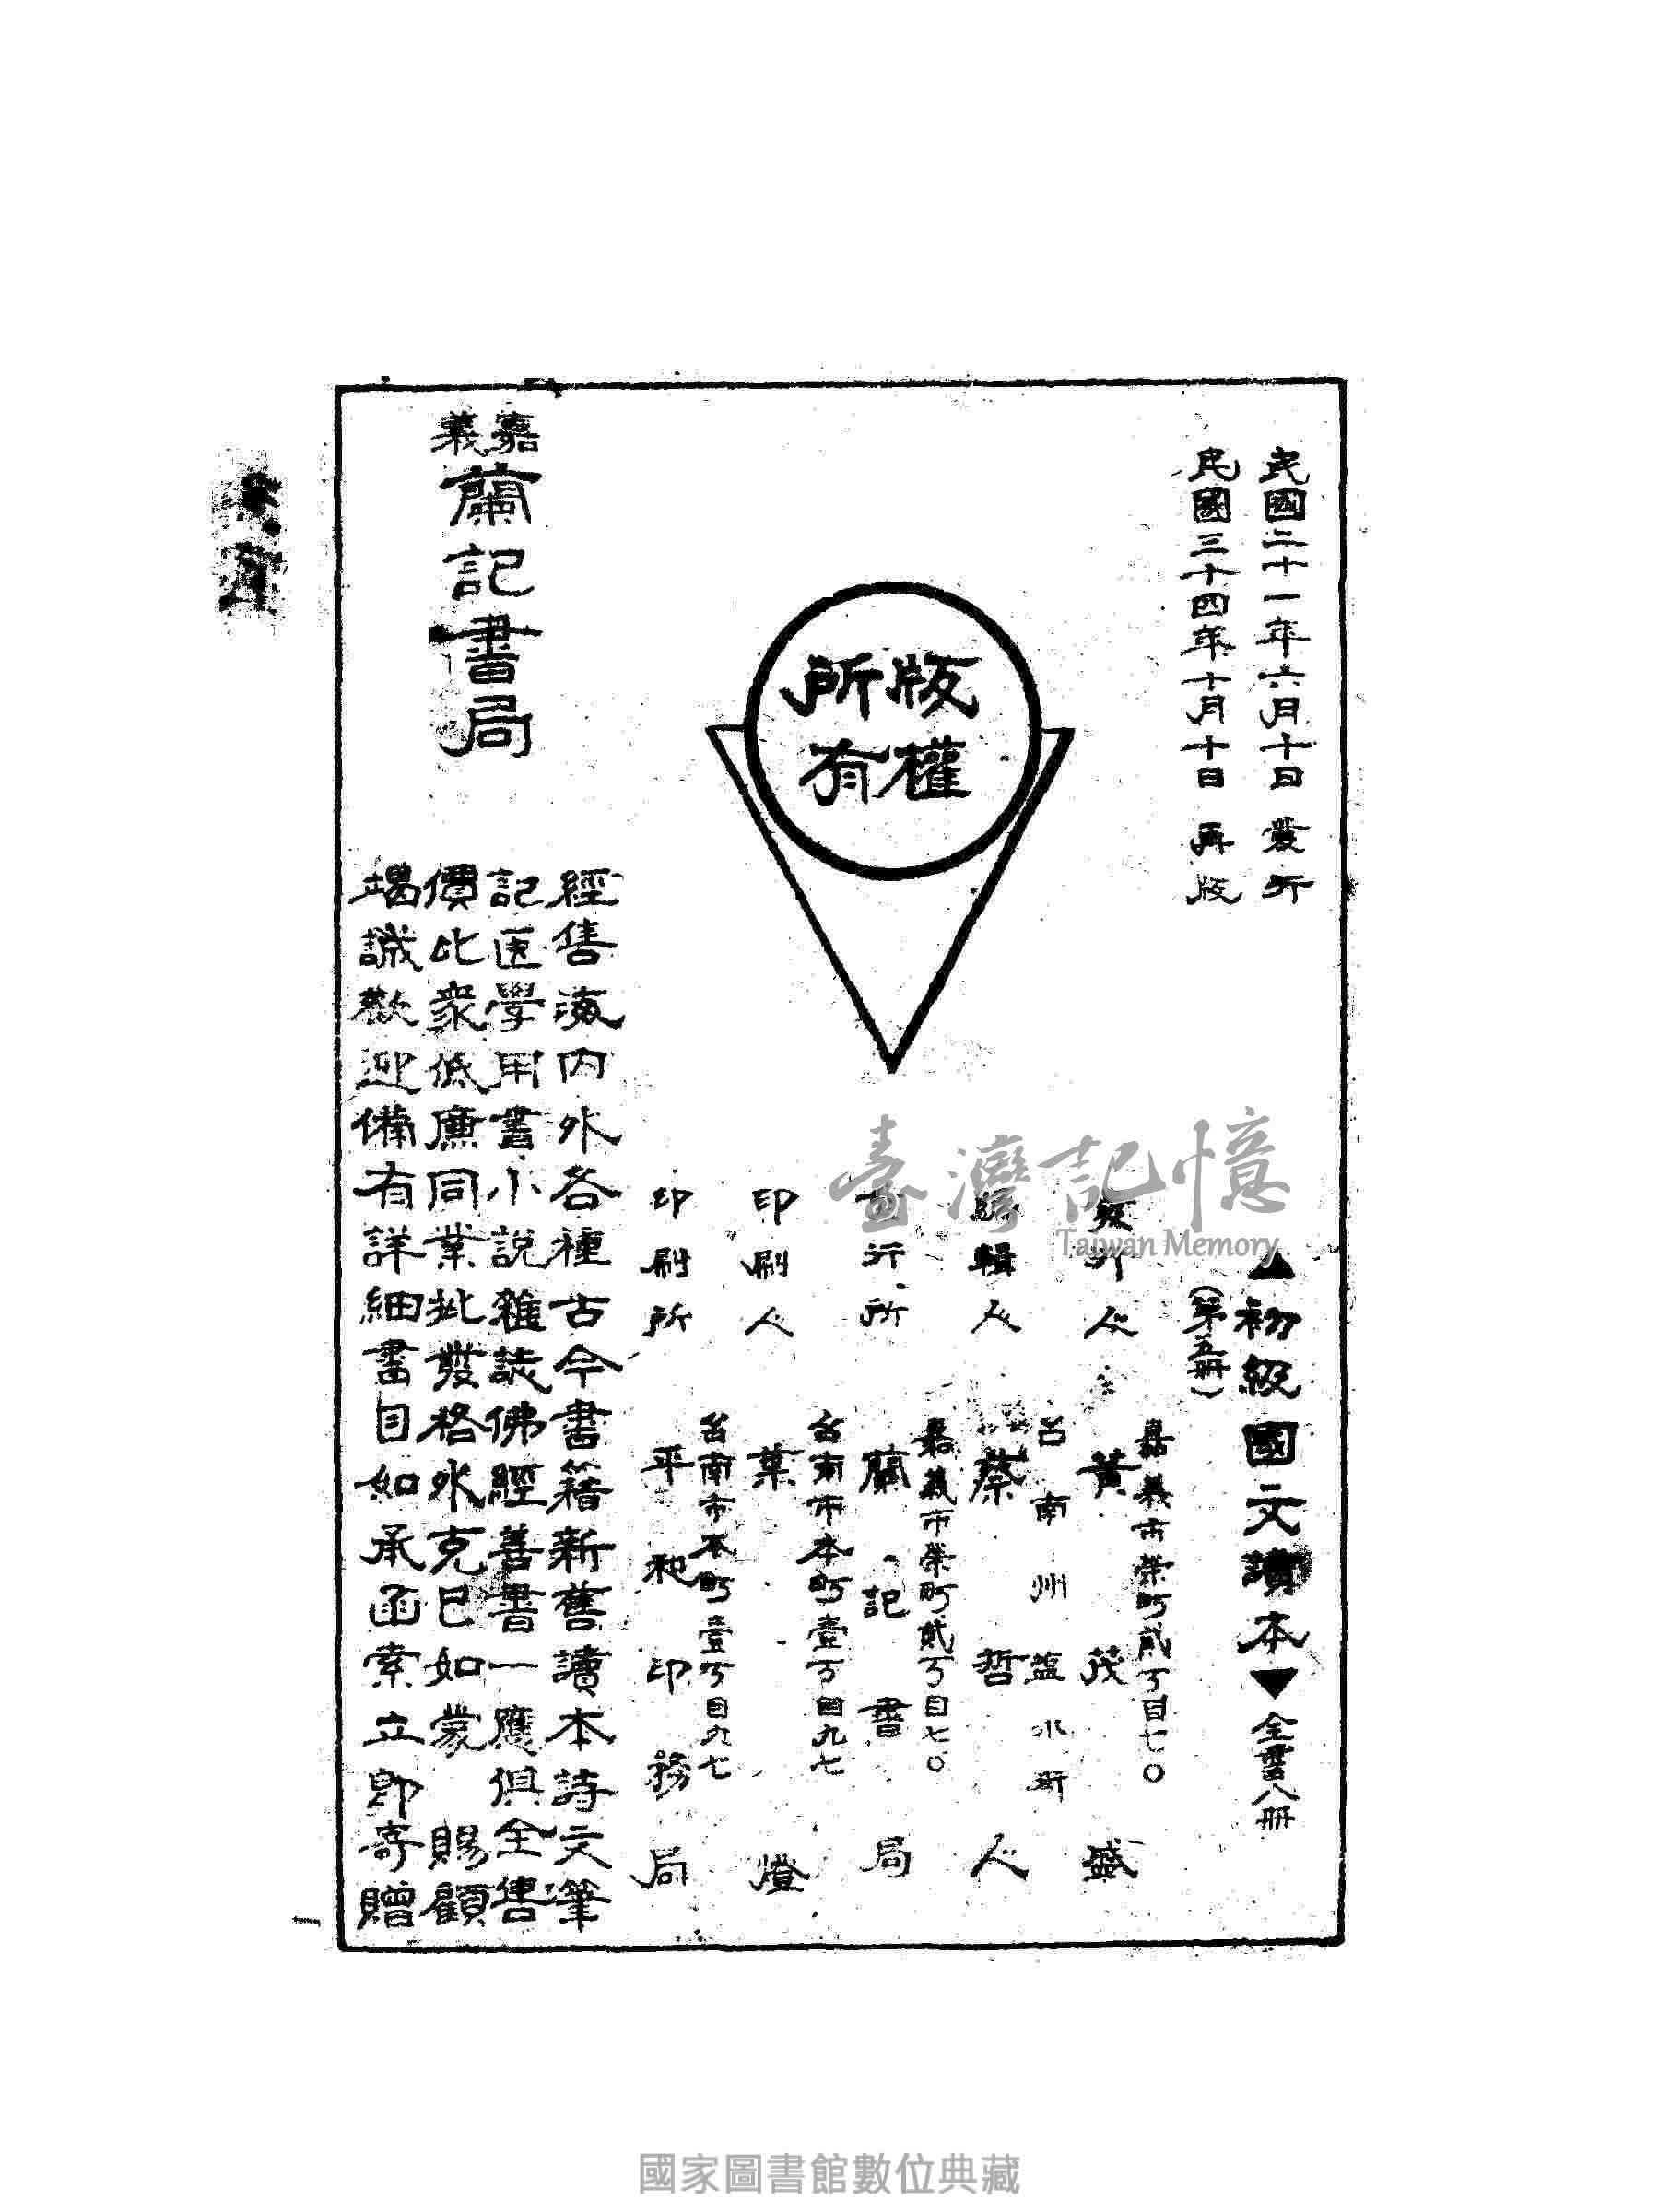 民國二十一年六月十日 發行
民國三十四年十月十日 再版
▲初級國文讀本▼全書八冊
(第五冊)
版權
所有
嘉義市榮町貳丁目七〇
發行人 黃茂盛
台南州鹽水街
編輯人 蔡哲人
嘉義市榮町貳丁目七〇
發行所 蘭記書局
台南市本町壹丁目九七
印刷人 葉燈
台南市本町壹丁目九七
印刷所 平和印務局
嘉義
蘭記書局
經售海內外各種古今書籍新舊讀本詩文筆
記医學用書小說雜誌佛經善書一應俱全售
價比衆低廉同業批發格外克已如蒙 賜顧
竭誠歡迎備有詳細書目如承函索立即寄贈
臺灣記憶
Taiwan Memory
國家圖書館數位典藏